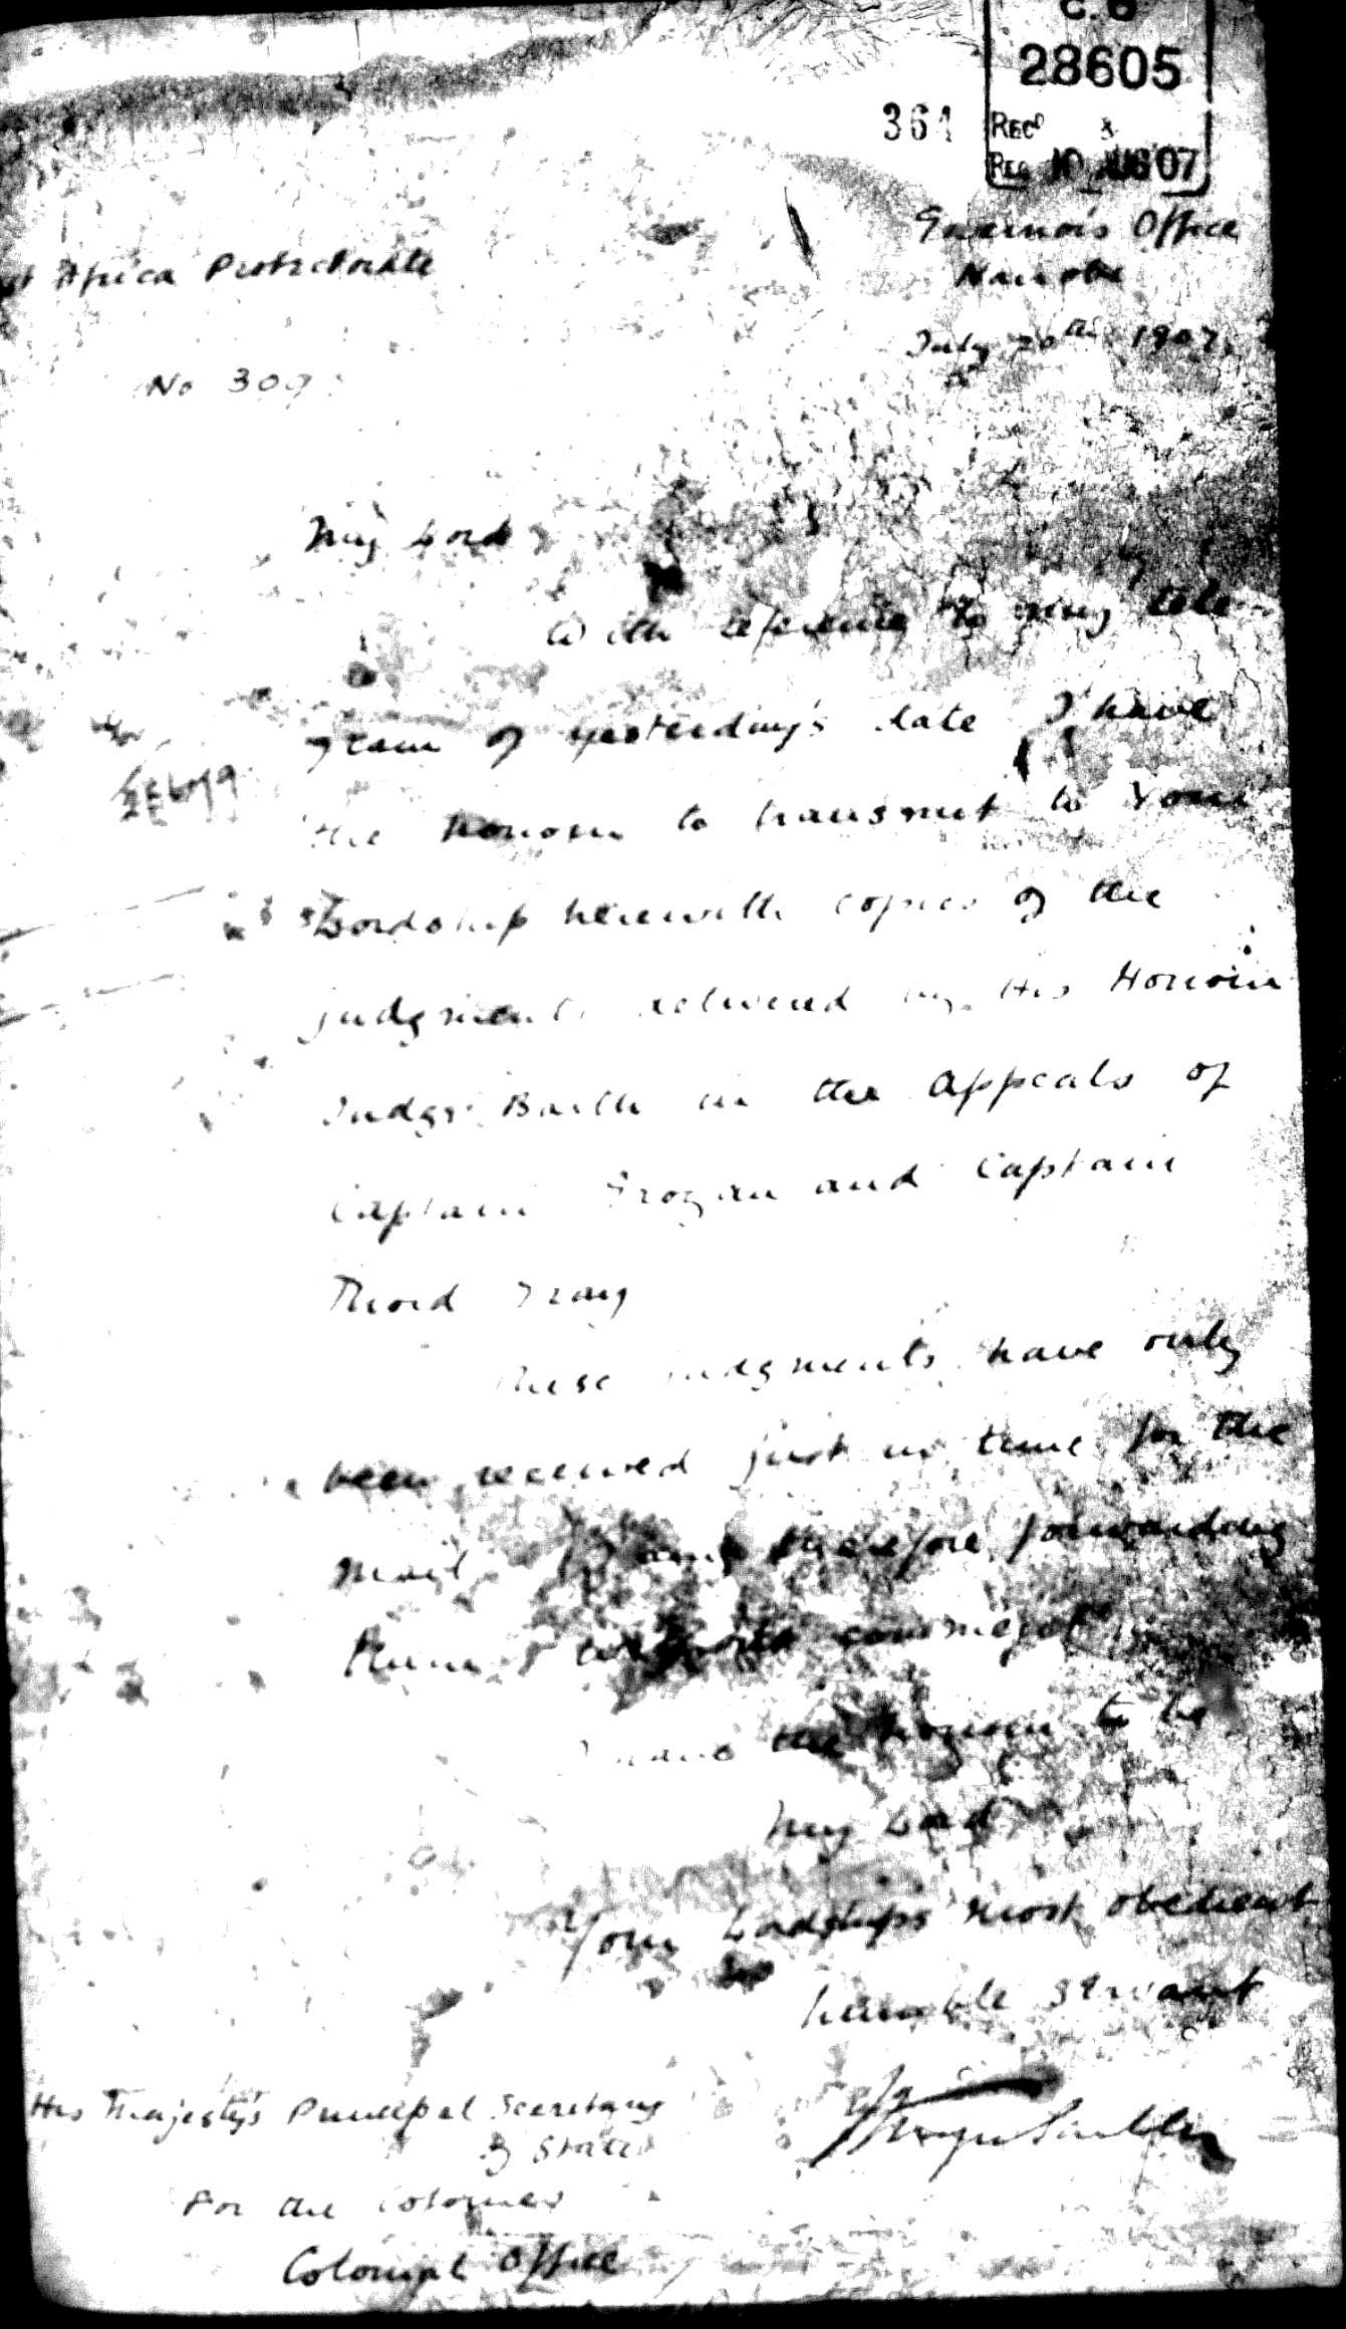 C.O
28605
364
REC^D
REG 10 AUG 07
Governor's Office
Nairobi
July 20th 1907
st Africa Protectorate
No 309
My Lord
With reference to my tele
gram of yesterday's date I have
the honour to transmit to Your
Lordship herewith copies of the
judgments delivered by His Honour
Judge Barth in the Appeals of
Captain Grogan and Captain
Thord Gray
These judgments have only
been received just in time for the
mail I am therefore forwarding
them without comment
I have the honour to be
My Lord
Your Lordship's most obedient
humble servant
His Majesty's Principal Secretary
of State
For the Colonies
Colonial Office